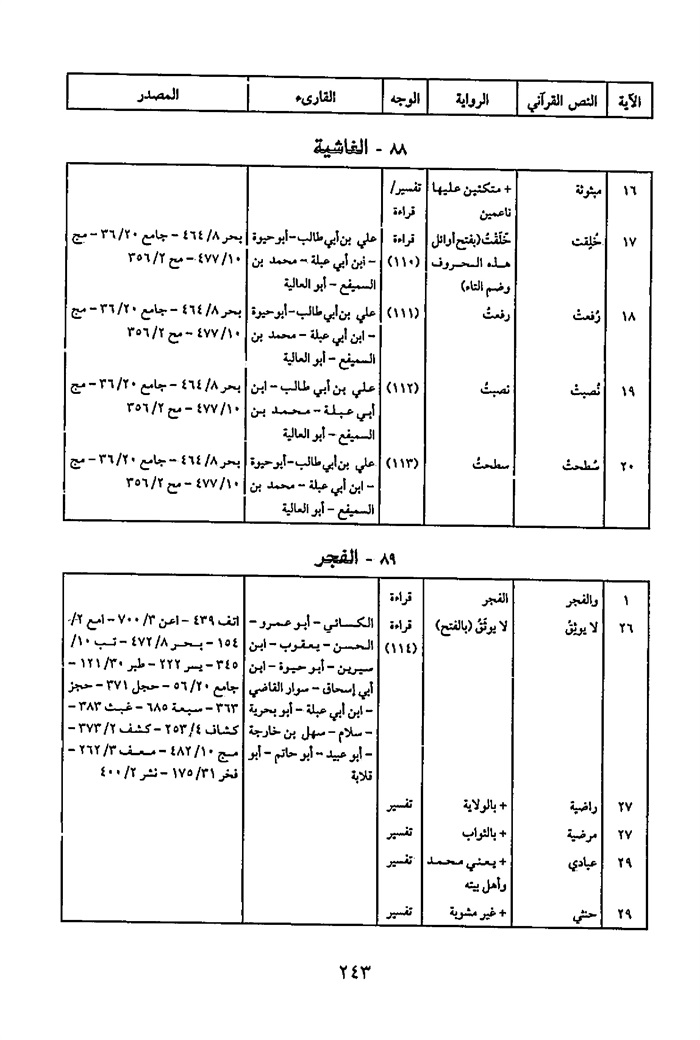 الآية | النص القرآني | الرواية | الوجه | القارىء | المصدر
٨٨ - الغاشية
١٦ | مبثوثة | + متكئين عليها | تفسير/
ناعمين | قراءة
١٧ | خُلِقت | خَلَقْتُ (بفتح أوائل | قراءة | علي بن أبي طالب - أبو حيوة | بحر ٤٦٤/٨ - جامع ٣٦/٢٠ - مج
هذه الحروف | (١١٠) | - ابن أبي عبلة - محمد بن | ٤٧٧/١٠ - مح ٣٥٦/٢
وضم التاء) | السميفع - أبو العالية
١٨ | رُفعتْ | رفعتُ | (١١١) | علي بن أبي طالب - أبو حيوة | بحر ٤٦٤/٨ - جامع ٣٦/٢٠ - مج
- ابن أبي عبلة - محمد بن | ٤٧٧/١٠ - مح ٣٥٦/٢
السميفع - أبو العالية
١٩ | نُصبتْ | نصبتُ | (١١٢) | علي بن أبي طالب - ابن | بحر ٤٦٤/٨ - جامع ٣٦/٢٠ - مج
أبي عبلة - محمد بن | ٤٧٧/١٠ - مح ٣٥٦/٢
السميفع - أبو العالية
٢٠ | سُطحتْ | سطحتُ | (١١٣) | علي بن أبي طالب - أبو حيوة | بحر ٤٦٤/٨ - جامع ٣٦/٢٠ - مج
- ابن أبي عبلة - محمد بن | ٤٧٧/١٠ - مح ٣٥٦/٢
السميفع - أبو العالية
٨٩ - الفجر
١ | والفجر | الفجر | قراءة
٢٦ | لا يوثِقُ | لا يوثَقُ (بالفتح) | قراءة | الكسائي - أبو عمرو - | اتف ٤٣٩ - اعن ٧٠٠/٣ - امع ٢/
(١١٤) | الحسن - يعقوب - ابن | ١٥٤ - بحر ٤٧٢/٨ - تب ١٠/
سيرين - أبو حيوة - ابن | ٣٤٥ - يسر ٢٢٢ - طبر ١٢١/٣٠ -
أبي إسحاق - سوار القاضي | جامع ٥٦/٢٠ - حجل ٣٧١ - حجز
- ابن أبي عبلة - أبو بحرية | ٣٦٣ - سبعة ٦٨٥ - غيث ٣٨٣ -
- سلام - سهل بن خارجة | كشاف ٢٥٣/٤ - كشف ٣٧٣/٢ -
- أبو عبيد - أبو حاتم - أبو | مج ٤٨٢/١٠ - معف ٢٦٢/٣ -
قلابة | فخر ١٧٥/٣١ - نشر ٤٠٠/٢
٢٧ | راضية | + بالولاية | تفسير
٢٧ | مرضية | + بالثواب | تفسير
٢٩ | عبادي | + يعني محمد | تفسير
وأهل بيته
٢٩ | جنتي | + غير مشوبة | تفسير
٢٤٣